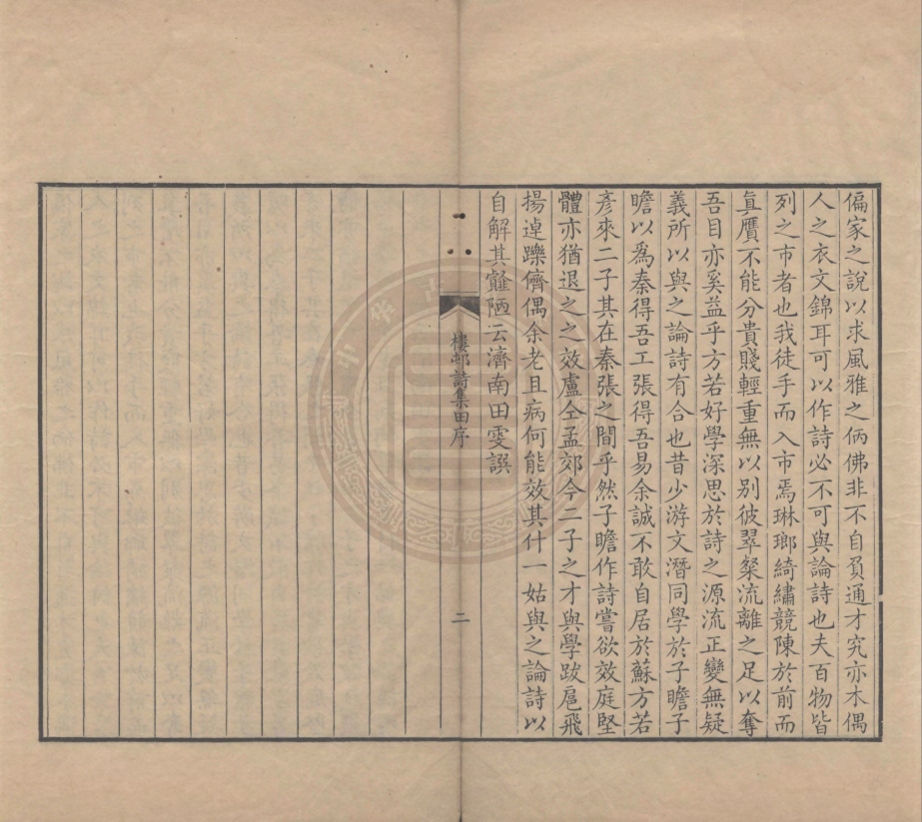 偏家之說以求風雅之俩佛非不自負通才究亦木偶
人之衣文錦耳可以作詩必不可與論詩也夫百物皆
列之市者也我徒手而入市焉琳瑯綺繡競陳於前而
真贋不能分貴賤輕重無以別彼翠粲流離之足以奪
吾目亦奚益乎方若好學深思於詩之源流正變無疑
義所以與之論詩有合也昔少游文潛同學於子瞻子
瞻以爲秦得吾工張得吾易余誠不敢自居於蘇方若
彥來二子其在秦張之間乎然子瞻作詩嘗欲效庭堅
體亦猶退之之效盧仝孟郊今二子之才與學跋扈飛
揚逴躒儕偶余老且病何能效其什一姑與之論詩以
自解其離陋云濟南田雯譔
樓邨詩集田序
二